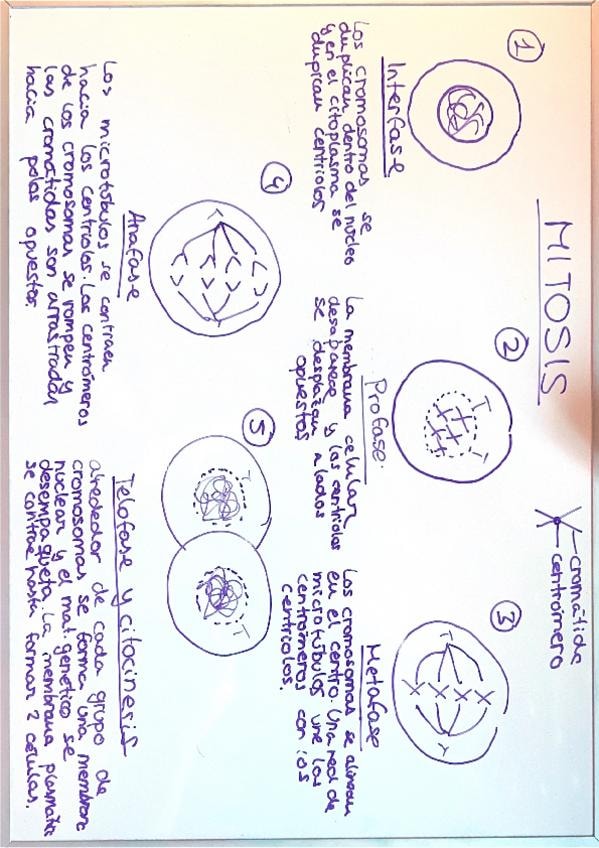 MITOSIS
cromátida
centrómero
1
Interfase
Los cromosomas se
duplican dentro del núcleo
y en el citoplasma se
duplican centriolos
2
Profase.
La membrana celular
desaparece y los centriolos
se desplazan a lados
opuestos
3
Metafase
Los cromosomas se alinean
en el centro. Una red de
microtúbulos une los
centrómeros con los
centriolos.
4
Anafase
Los microtúbulos se contraen
hacia los centriolos. Los centrómeros
de los cromosomas se rompen y
las cromátidas son arrastradas
hacia polos opuestos.
5
Telofase y citocinesis
alrededor de cada grupo de
cromosomas se forma una membrana
nuclear y el mat. genético se
desempaqueta. La membrana plasmática
se contrae hasta formar 2 células.